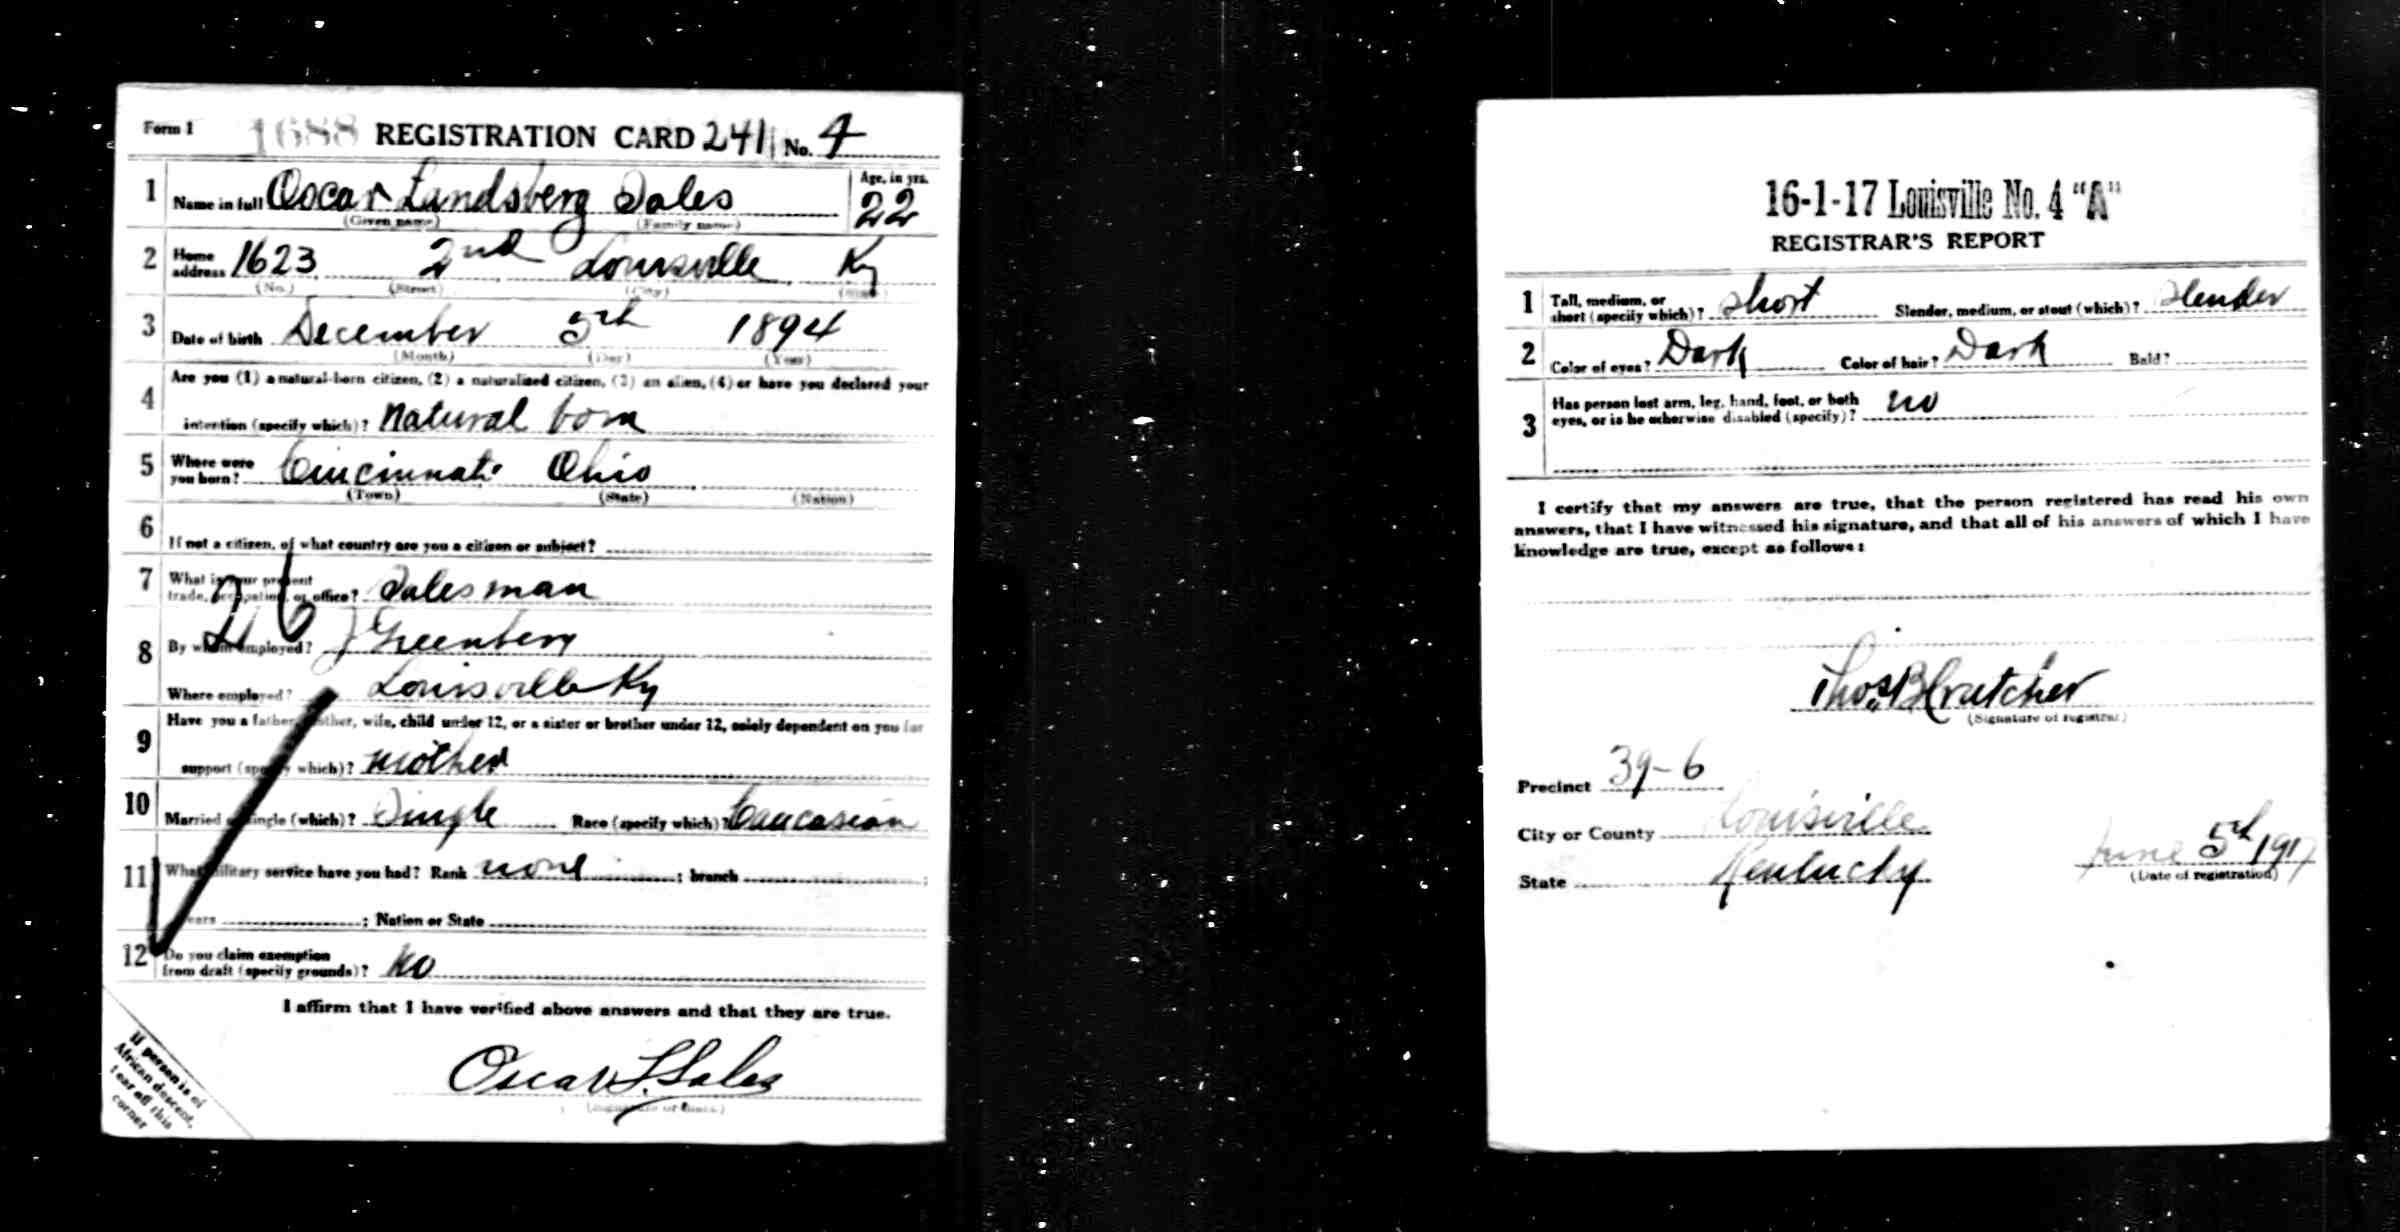 Form 1 1688 REGISTRATION CARD 241 No. 4
1 Name in full Oscar Landsberg Sales Age, in yrs. 22
(Given name) (Family name)
2 Home address 1623 2nd Louisville Ky
(No.) (Street) (City) (State)
3 Date of birth December 5th 1894
(Month) (Day) (Year)
4 Are you (1) a natural-born citizen, (2) a naturalized citizen, (3) an alien, (4) or have you declared your
intention (specify which)? Natural born
5 Where were you born? Cincinnati Ohio
(Town) (State) (Nation)
6 If not a citizen, of what country are you a citizen or subject?
7 What is your present trade, occupation, or office? Salesman
8 By whom employed? J Greenberg
Where employed? Louisville Ky
9 Have you a father, mother, wife, child under 12, or a sister or brother under 12, solely dependent on you for
support (specify which)? Mother
10 Married or single (which)? Single Race (specify which)? Caucasian
11 What military service have you had? Rank none ; branch ;
years ; Nation or State
12 Do you claim exemption from draft (specify grounds)? No
I affirm that I have verified above answers and that they are true.
Oscar L. Sales
(Signature or mark)
If person is of
African descent,
tear off this
corner
16-1-17 Louisville No. 4 "A"
REGISTRAR'S REPORT
1 Tall, medium, or short (specify which)? Short Slender, medium, or stout (which)? Slender
2 Color of eyes? Dark Color of hair? Dark Bald?
3 Has person lost arm, leg, hand, foot, or both
eyes, or is he otherwise disabled (specify)? no
I certify that my answers are true, that the person registered has read his own
answers, that I have witnessed his signature, and that all of his answers of which I have
knowledge are true, except as follows:
Thos B Crutcher
(Signature of registrar)
Precinct 39-6
City or County Louisville
State Kentucky
June 5th 1917
(Date of registration)